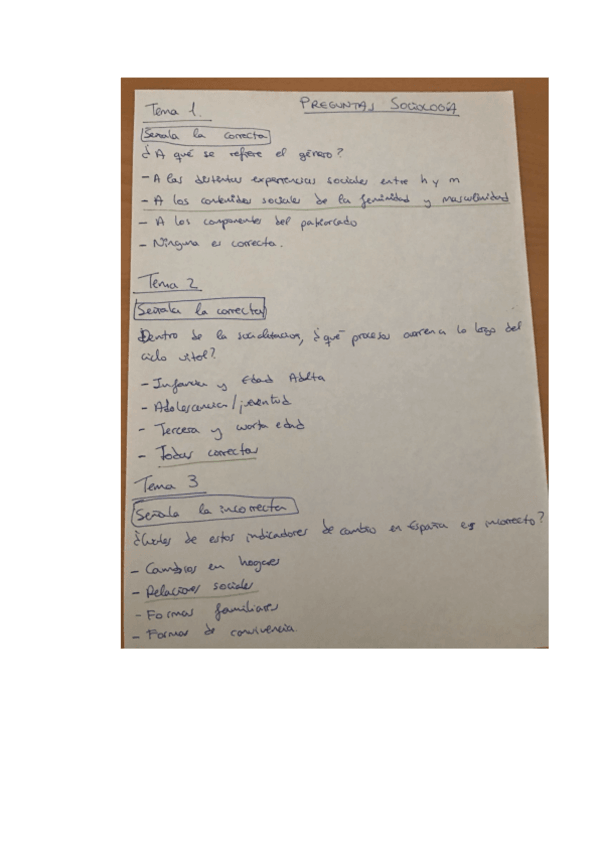 PREGUNTAS SOCIOLOGÍA
Tema 1.
Señala la correcta
¿A qué se refiere el género?
- A las distintas experiencias sociales entre h y m
- A los contenidos sociales de la feminidad y masculinidad
- A los componentes del patriarcado
- Ninguna es correcta.
Tema 2
Señala la correcta
Dentro de la socialización, ¿qué procesos ocurren a lo largo del
ciclo vital?
- Infancia y Edad Adulta
- Adolescencia/juventud
- Tercera y cuarta edad
- Todas correctas
Tema 3
Señala la incorrecta
¿Cuáles de estos indicadores de cambio en España es incorrecto?
- Cambios en hogares
- Relaciones sociales
- Formas familiares
- Formas de convivencia.